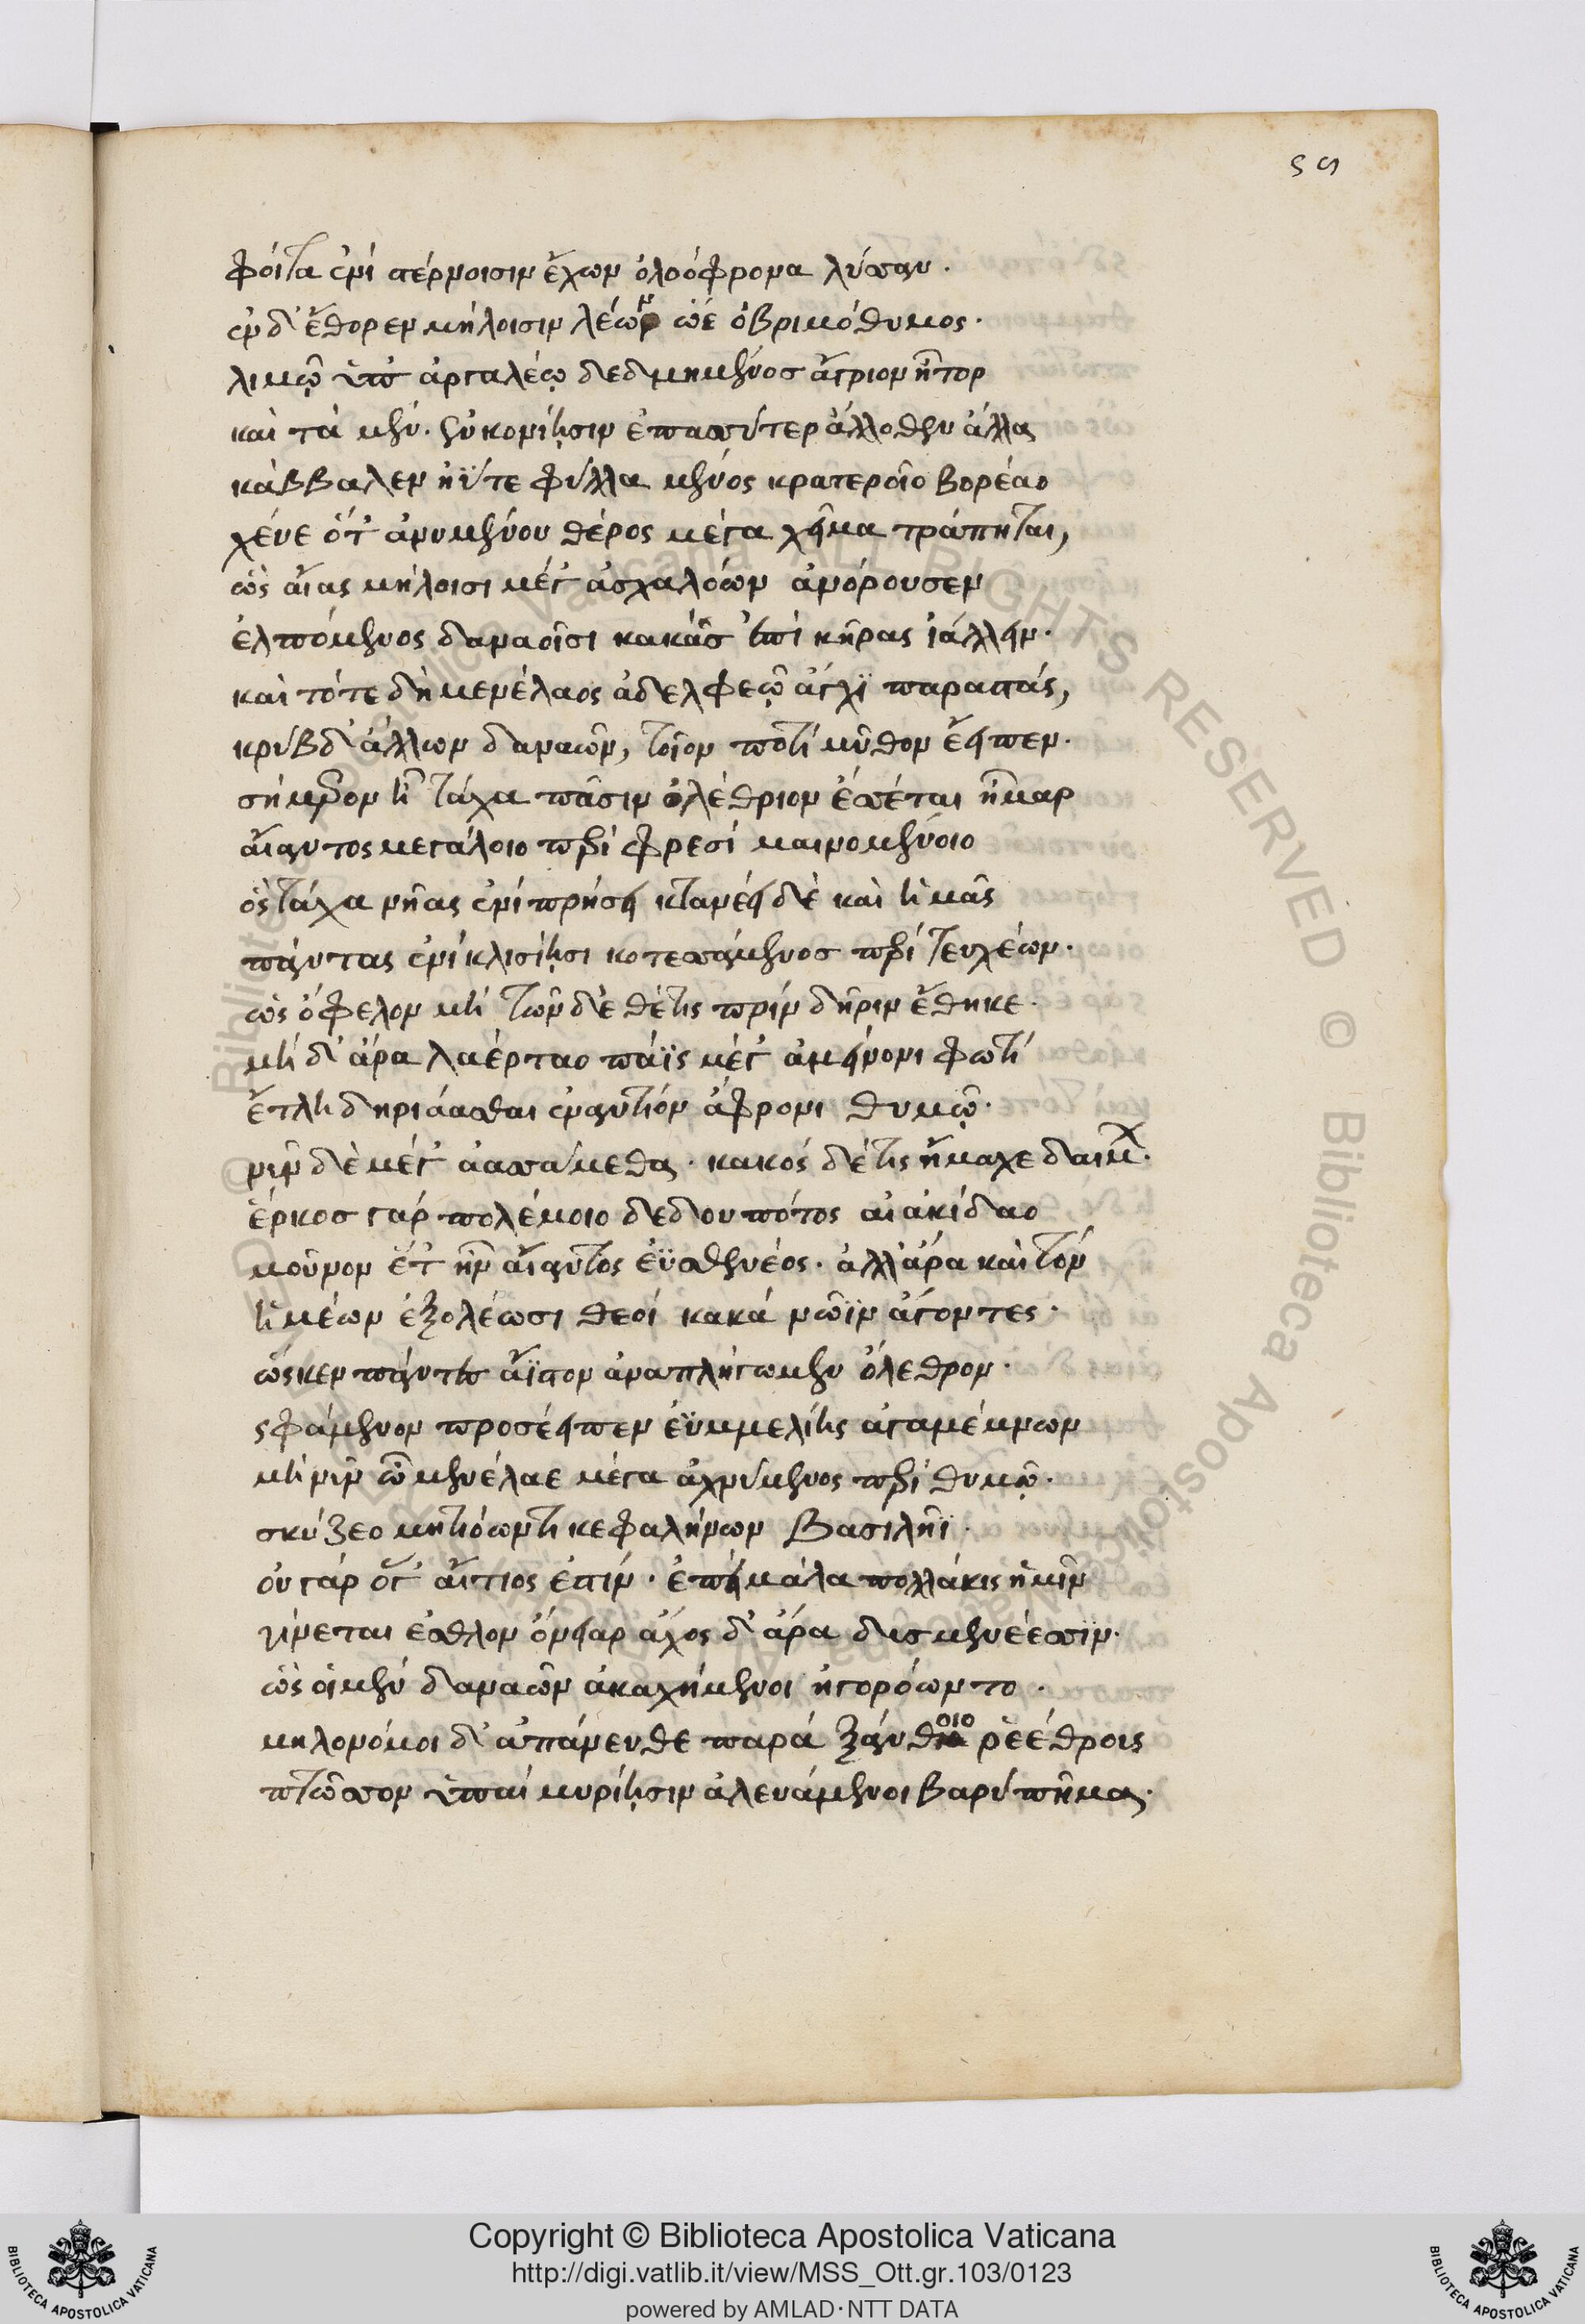 59
φοίτα ἐνὶ στέρνοισιν ἔχων ὀλοόφρονα λύσσαν.
ἐν δ' ἔθορεν μήλοισιν λέων ὡς ὀβριμόθυμος.
λιμῷ ὑπ' ἀργαλέῳ δεδμημένος ἄγριον ἦτορ
καὶ τὰ μὲν ἐν κονίῃσιν ἐπασσύτερ' ἄλλοθεν ἄλλα
κάββαλεν ἠΰτε φύλλα μένος κρατεροῖο βορέαο
χέυε ὅτ' ἀνυμένου θέρος μέγα χεῖμα τράπηται,
ὣς αἴας μήλοισι μέγ' ἀσχαλόων ἀνόρουσεν
ἐλπόμενος δαναοῖσι κακὰς ἐπὶ κῆρας ἰάλλειν.
καὶ τότε δὴ μενέλαος ἀδελφεῷ ἄγχι παραστάς,
κρύβδ' ἄλλων δαναῶν, τοῖον ποτὶ μῦθον ἔειπεν.
σήμερον ἢ τάχα πᾶσιν ὀλέθριον ἔσσεται ἦμαρ
αἴαντος μεγάλοιο περὶ φρεσὶ μαινομένοιο
ὃς τάχα νῆας ἐνιπρήσει κτανέει δὲ καὶ ἡμᾶς
πάντας ἐνὶ κλισίῃσι κοτεσσάμενος περὶ τευχέων.
ὡς ὄφελον μὴ τῶνδε θέτις πρὶν δῆριν ἔθηκε.
μὴ δ' ἄρα λαέρταο πάϊς μέγ' ἀμείνονι φωτὶ
ἔτλη δηριάασθαι ἐναντίον ἄφρονι θυμῷ.
νῦν δὲ μέγ' ἀασσάμεθα. κακός δέ τις ἤπαχε δαίμων.
ἕρκος γὰρ πολέμοιο δεδουπότος αἰακίδαο
μοῦνον ἔτ' ἦν αἴαντος ἐϋσθενέος. ἀλλ' ἄρα καὶ τὸν
ἡμέων ἐξολέωσι θεοὶ κακὰ νῶϊν ἄγοντες.
ὥς κεν πάντες ἄϊστον ἀναπλήσωμεν ὄλεθρον.
ὣς φάμενον προσέειπεν ἐϋμμελίης ἀγαμέμνων
μὴ νῦν ὦ μενέλαε μέγα ἀχνύμενος περὶ θυμῷ.
σκύζεο μητιόωντι κεφαλήνων βασιλῆϊ.
οὐ γὰρ ὅγ' αἴτιος ἐστίν. ἐπεὶ μάλα πολλάκις ἡμῖν
γίνεται ἐσθλὸν ὄνειαρ ἄχος δ' ἄρα δυσμενέεσσιν.
ὣς οἱ μὲν δαναῶν ἀκαχήμενοι ἠγορόωντο.
μηλονόμοι δ' ἀπάνευθε παρὰ ξάνθοιο ῥεέθροις
πτῶσσον ὑπαὶ μυρίκῃσιν ἀλευάμενοι βαρὺ πῆμα.
© Biblioteca Apostolica Vaticana ALL RIGHTS RESERVED © Biblioteca Apostolica Vaticana ALL RIGHTS RESERVED
Copyright © Biblioteca Apostolica Vaticana
http://digi.vatlib.it/view/MSS_Ott.gr.103/0123
powered by AMLAD·NTT DATA
BIBLIOTECA APOSTOLICA VATICANA
BIBLIOTECA APOSTOLICA VATICANA